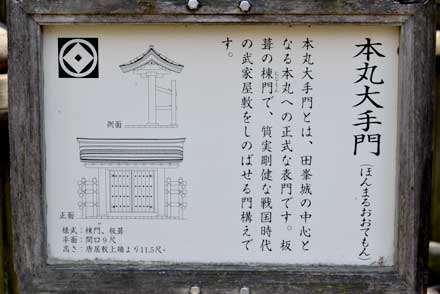 本丸大手門(ほんまるおおてもん)
本丸大手門とは、田峯城の中心と
なる本丸への正式な表門です。板
葺の棟門で、質実剛健な戦国時代
の武家屋敷をしのばせる門構えで
す。
側面
正面
様式：棟門、板葺
平面：間口9尺
高さ：唐居敷上端より11.5尺